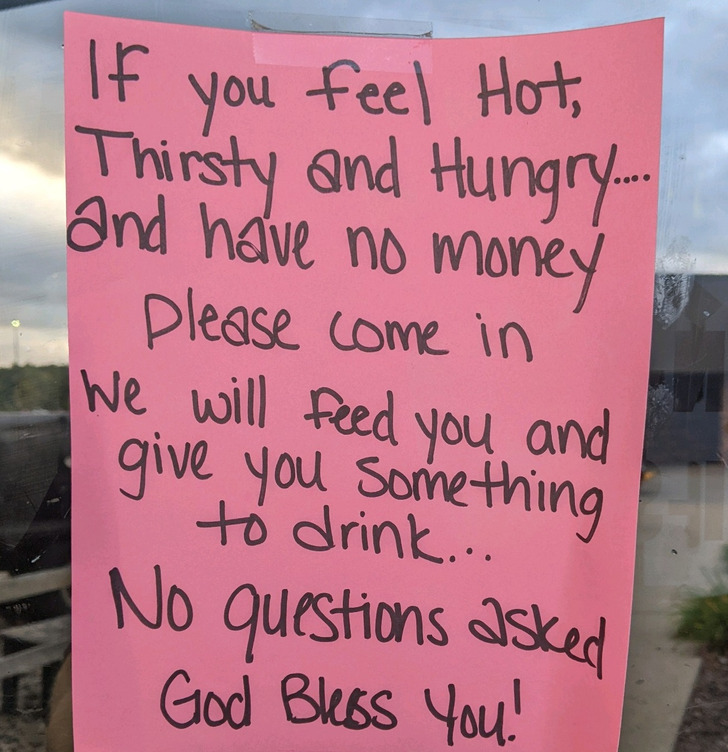 If you feel Hot,
Thirsty and Hungry....
and have no money
Please come in
We will feed you and
give you something
to drink...
No questions asked
God Bless You!